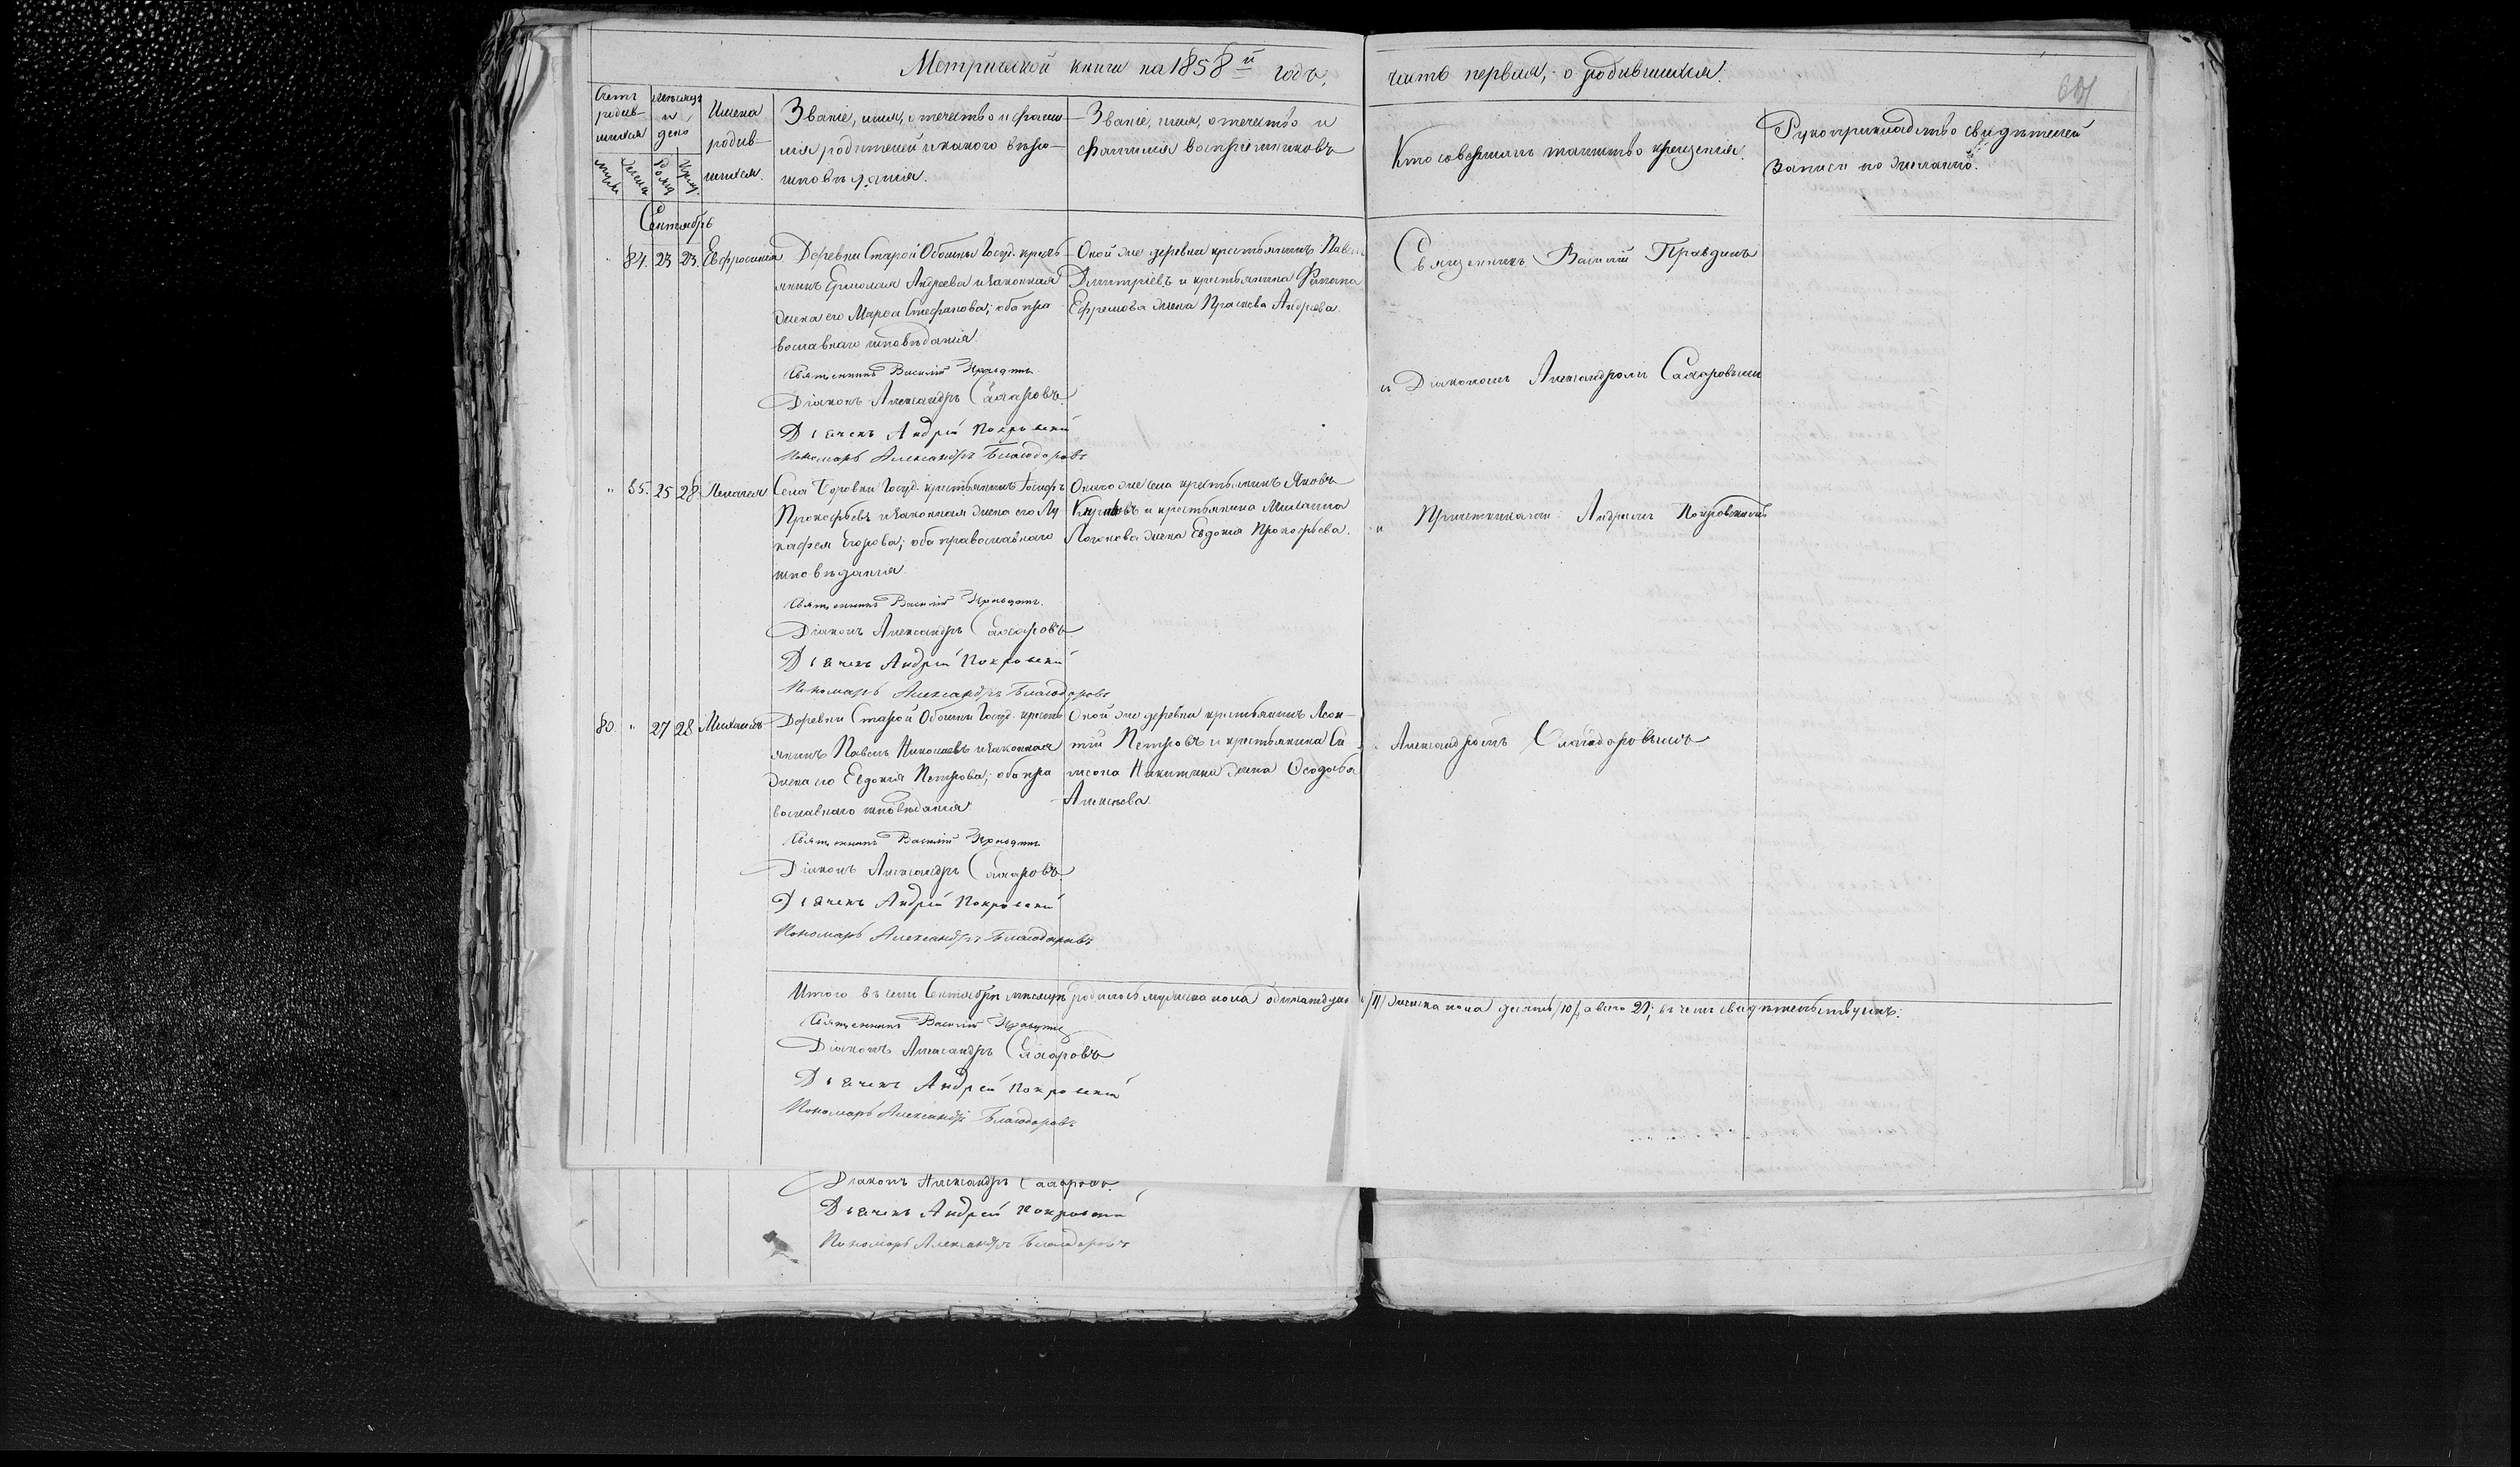 Метрической книги на 1858й годъ,
часть первая, о родившихся.
Счетъ родив-шихся
Мѣсяцъ и день
Имена родив-шихся.
Званіе, имя, отечество и фами-
лія родителей и какого вѣро-
исповѣданія.
Званіе, имя, отечество и
фамилія воспріемниковъ
Кто совершалъ таинство крещенія.
Рукоприкладство свидѣтелей
записи по желанію.
Сентябрь
84. 23 23. Евфросинія
Деревни Старой Госуд. кресть
янинъ Ермолай Андреевъ и законная
жена его Марѳа Стефанова; оба пра
вославнаго исповѣданія.
Священникъ Василій Правдинъ.
Діаконъ Александръ Сахаровъ
Дьячекъ Андрей Покровскій
Пономарь Александръ Благодаровъ
Оной же деревни крестьянинъ
Димитріевъ и крестьянина Филипа
Ефремова жена Прасковья Андреева.
Священникъ Василій Правдинъ
съ Діакономъ Александромъ Сахаровымъ
и Причетниками: Андреемъ Покровскимъ
и Александромъ Благодаровымъ
85. 25 28. Пелагея
Села Боровки Госуд. крестьянинъ Іосифъ
Прокофьевъ и законная жена его Лу
керья Егорова; оба православнаго
исповѣданія.
Священникъ Василій Правдинъ.
Діаконъ Александръ Сахаровъ
Дьячекъ Андрей Покровскій
Пономарь Александръ Благодаровъ
Онаго же села крестьянинъ Яковъ
и крестьянина Михаила
жена Евдокія Прокофьева.
80. " 27 28 Михаилъ
Деревни Старой Госуд. кресть
янинъ Павелъ Николаевъ и законная
жена его Евдокія Петрова; оба пра
вославнаго исповѣданія
Священникъ Василій Правдинъ
Діаконъ Александръ Сахаровъ
Дьячекъ Андрей Покровскій
Пономарь Александръ Благодаровъ
Оной же деревни крестьянинъ Леон-
тій Петровъ и крестьянина Си
мсона Никитина жена Ѳеодосья
Алексѣева.
Итого въ семъ Сентябрѣ мѣсяцѣ родилось мужеска пола одинадцать /11/ женска пола десять /10/, а всего 21; въ чемъ свидѣтельствуемъ:
Священникъ Василій Правдинъ
Діаконъ Александръ Сахаровъ
Дьячекъ Андрей Покровскій
Пономарь Александръ Благодаровъ
Діаконъ Александръ Сахаровъ.
Дьячекъ Андрей Покровскій
Пономарь Александръ Благодаровъ